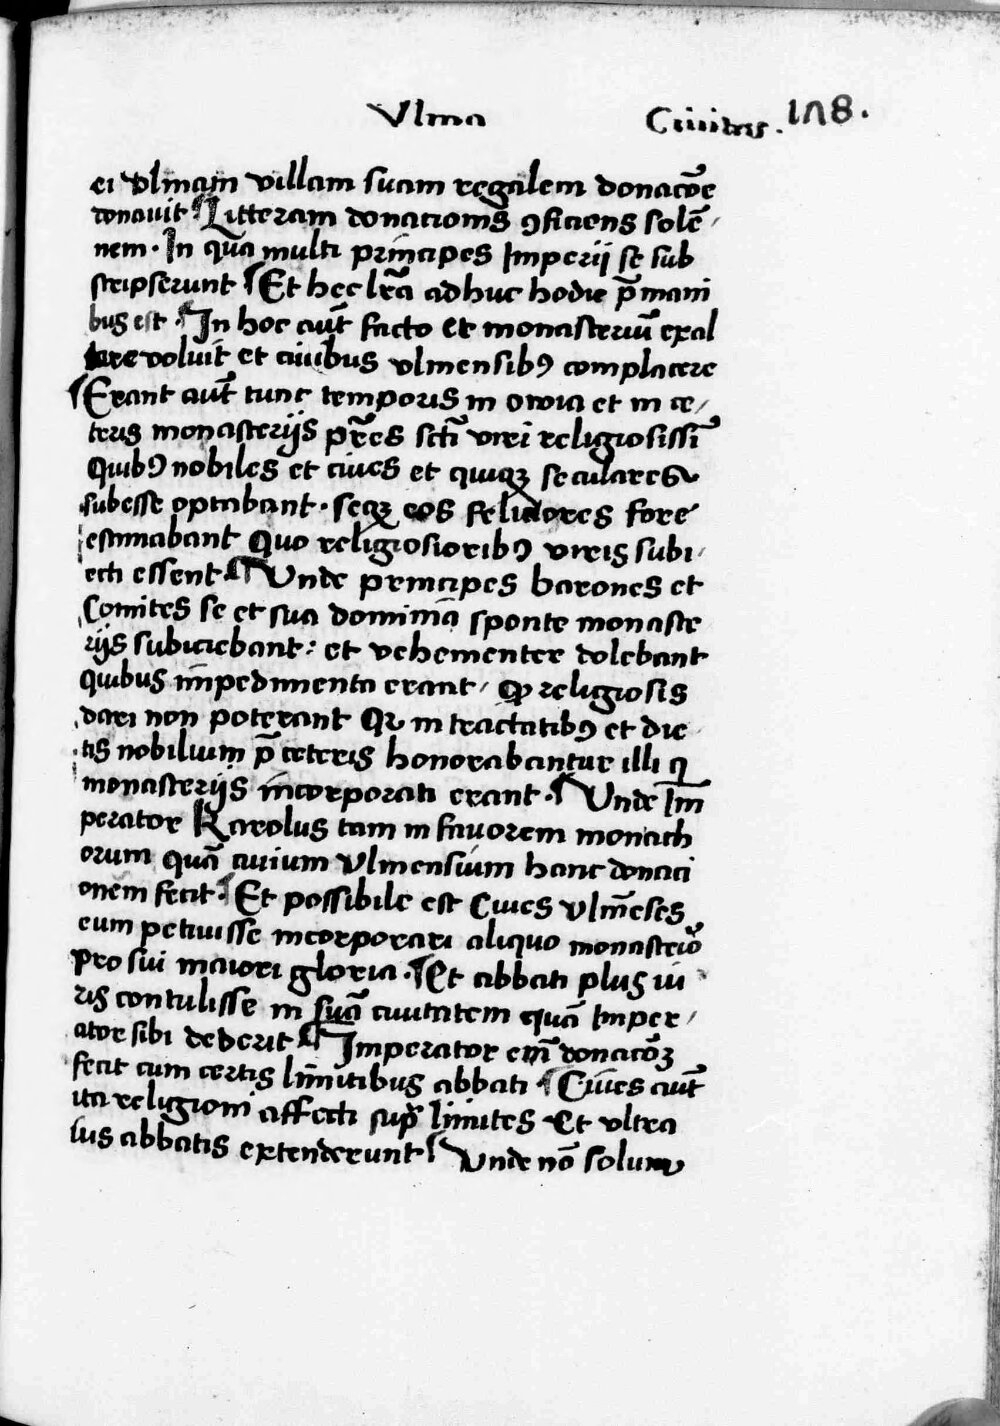 Vlma Ciuitas. 178.
ei vlmam villam suam regalem donacōe
donauit ¶ Litteram donacionis ꝯficiens solē-
nem · In qua multi principes Imperij se sub
scripserunt ¶ Et hec lr̄a adhuc hodie p̄ mani
bus est · ¶ In hoc aut̄ facto et monasteriū exal
tare voluit et ciuibus vlmensibꝰ complacere
¶ Erant aut̄ tunc temporis in owia et in ce-
teris monasterijs pr̄es sct̄i viri religiosissī
Quibꝰ nobiles et ciues et quiqꝫ seculares
subesse optabant · seqꝫ eos feliciores fore
estimabant Quo religiosioribꝰ viris subi-
ecti essent · ¶ Unde principes barones et
Comites se et sua dominia sponte monaste
rijs subiciebant : et vehementer dolebant
quibus impedimento erant / ꝙ religiosis
dari non poterant Qr in tractatibꝰ et die
tis nobilium p̄ ceteris honorabantur illi q
monasterijs incorporati erant · ¶ Unde Im̄
perator Karolus tam in fauorem monach
orum quā ciuium Vlmensium hanc donaci
onem fecit · ¶ Et possibile est Ciues vlm̄eses
eum petiuisse incorporari aliquo monasterio
pro sui maiori gloria · ¶ Et abbati plus iu
ris contulisse in suā ciuitatem quā Imper-
ator sibi dederit ¶ Imperator em̄ donacōꝫ
fecit cum certis limitibus abbati · ¶ Ciues aut̄
ita religioni affecti sup̄ limites Et vltra
ius abbatis extenderunt ¶ Unde nō solum